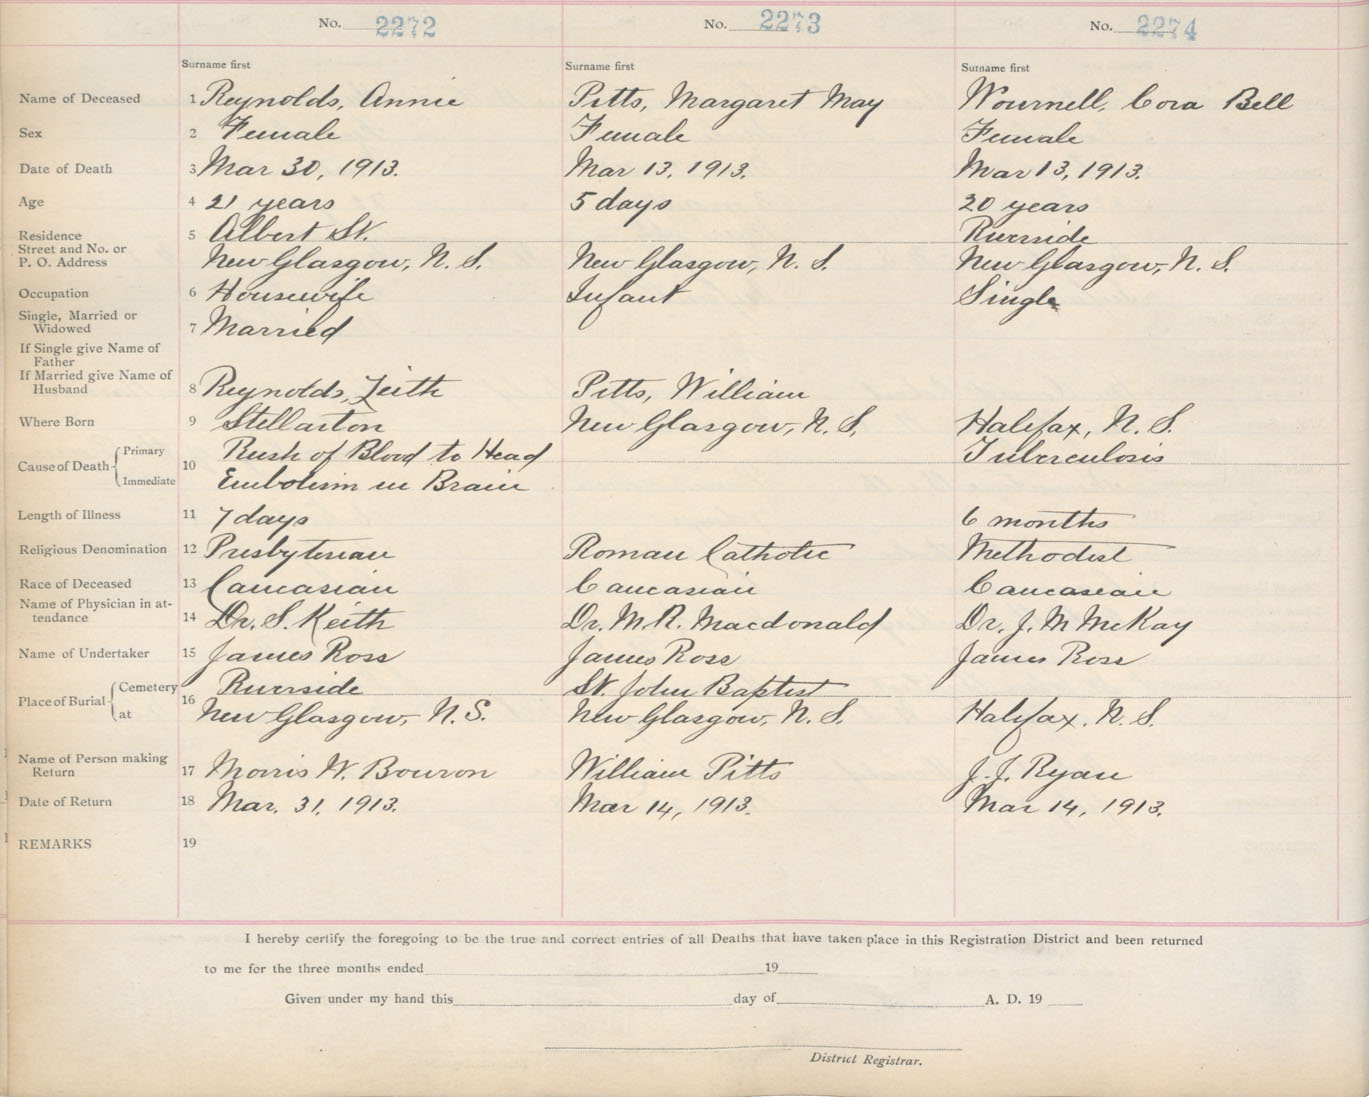 No. 2272 No. 2273 No. 2274
Surname first Surname first Surname first
Name of Deceased 1 Reynolds, Annie Pitts, Margaret May Wournell, Cora Bell
Sex 2 Female Female Female
Date of Death 3 Mar 30, 1913. Mar 13, 1913. Mar 13, 1913.
Age 4 21 years 5 days 20 years
Residence 5 Albert St. Riverside
Street and No. or
P. O. Address New Glasgow, N. S. New Glasgow, N. S. New Glasgow, N. S.
Occupation 6 Housewife Infant Single
Single, Married or
Widowed 7 Married
If Single give Name of
Father
If Married give Name of
Husband 8 Reynolds, Leith Pitts, William
Where Born 9 Stellarton New Glasgow, N. S. Halifax, N. S.
Cause of Death Primary 10 Rush of Blood to Head Tuberculosis
Immediate Embolism in Brain
Length of Illness 11 7 days 6 months
Religious Denomination 12 Presbyterian Roman Catholic Methodist
Race of Deceased 13 Caucasian Caucasian Caucasian
Name of Physician in at-
tendance 14 Dr. S. Keith Dr. M. R. Macdonald Dr. J. M McKay
Name of Undertaker 15 James Ross James Ross James Ross
Place of Burial Cemetery 16 Riverside St. John Baptist
at New Glasgow, N. S. New Glasgow, N. S. Halifax, N. S.
Name of Person making
Return 17 Morris W. Bowron William Pitts J. J. Ryan
Date of Return 18 Mar. 31, 1913. Mar 14, 1913. Mar 14, 1913.
REMARKS 19
I hereby certify the foregoing to be the true and correct entries of all Deaths that have taken place in this Registration District and been returned
to me for the three months ended 19
Given under my hand this day of A. D. 19
District Registrar.